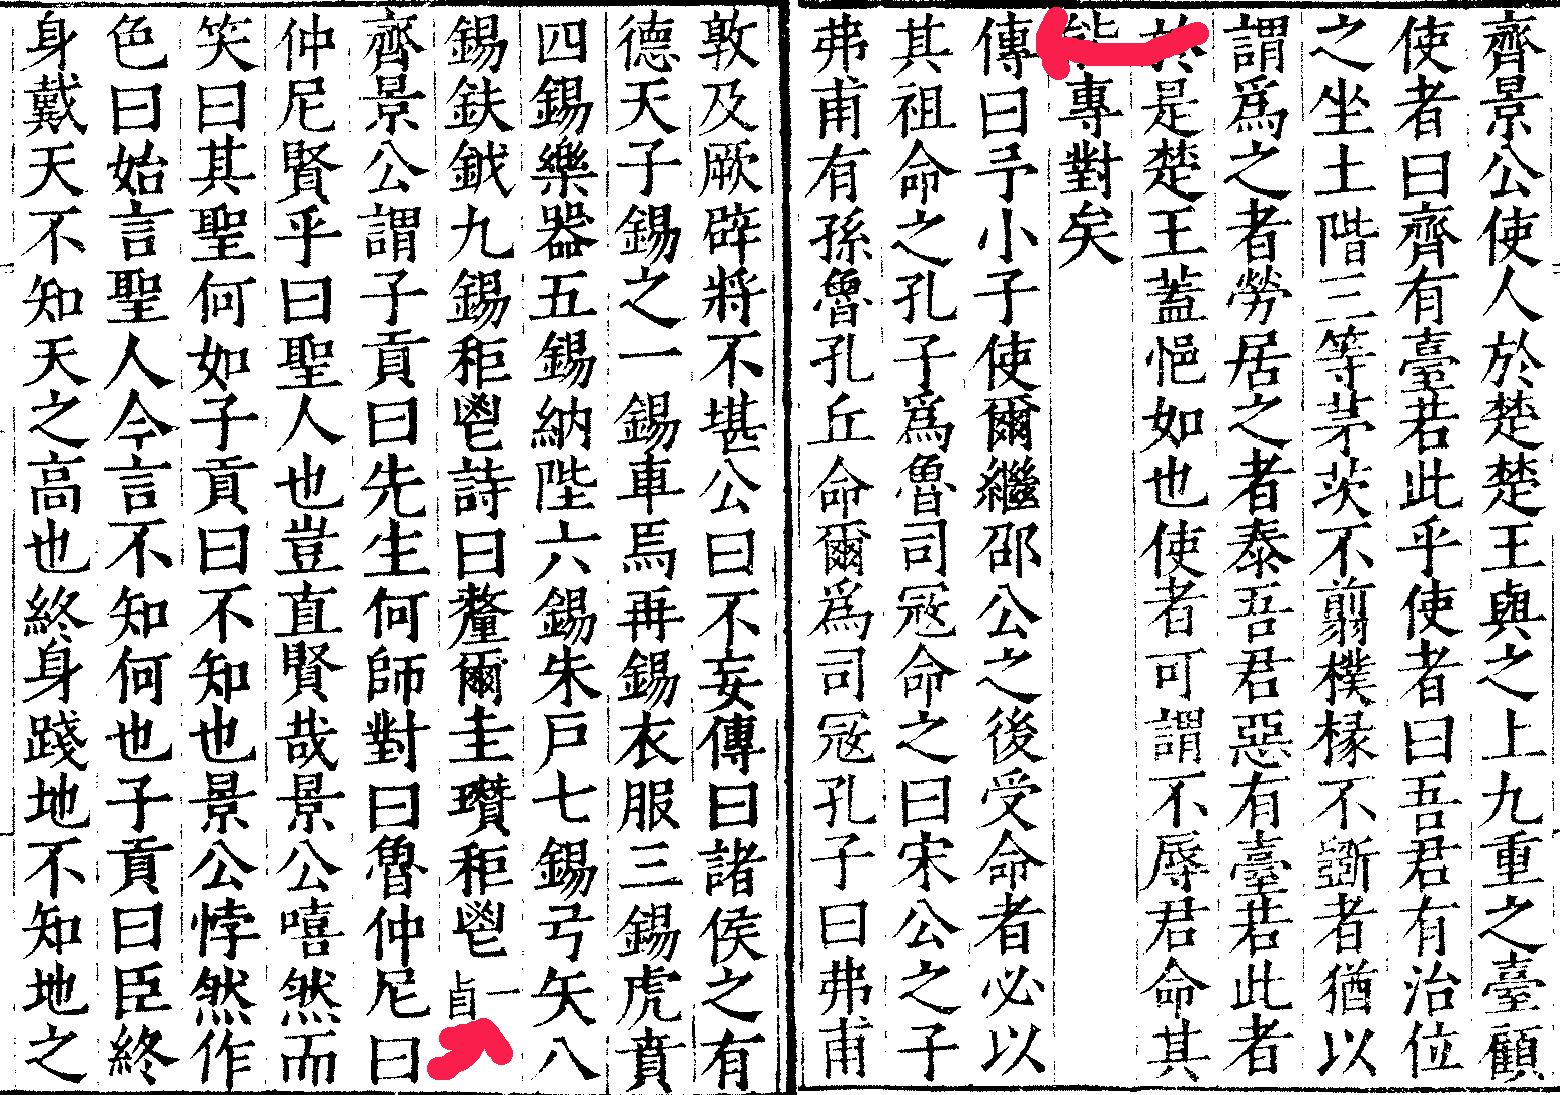 齊景公使人於楚楚王與之上九重之臺顧
使者曰齊有臺若此乎使者曰吾君有治位
之坐土階三等茅茨不翦樸椽不斵者猶以
謂爲之者勞居之者泰吾君惡有臺若此者
於是楚王蓋悒如也使者可謂不辱君命其
能專對矣
傳曰予小子使爾繼邵公之後受命者必以
其祖命之孔子爲魯司冦命之曰宋公之子
弗甫有孫魯孔丘命爾爲司冦孔子曰弗甫
敦及厥辟將不堪公曰不妄傳曰諸侯之有
德天子錫之一錫車馬再錫衣服三錫虎賁
四錫樂器五錫納陛六錫朱戶七錫弓矢八
錫鈇鉞九錫秬鬯詩曰釐爾圭瓚秬鬯一卣
齊景公謂子貢曰先生何師對曰魯仲尼曰
仲尼賢乎曰聖人也豈直賢哉景公嘻然而
笑曰其聖何如子貢曰不知也景公悖然作
色曰始言聖人今言不知何也子貢曰臣終
身戴天不知天之高也終身踐地不知地之